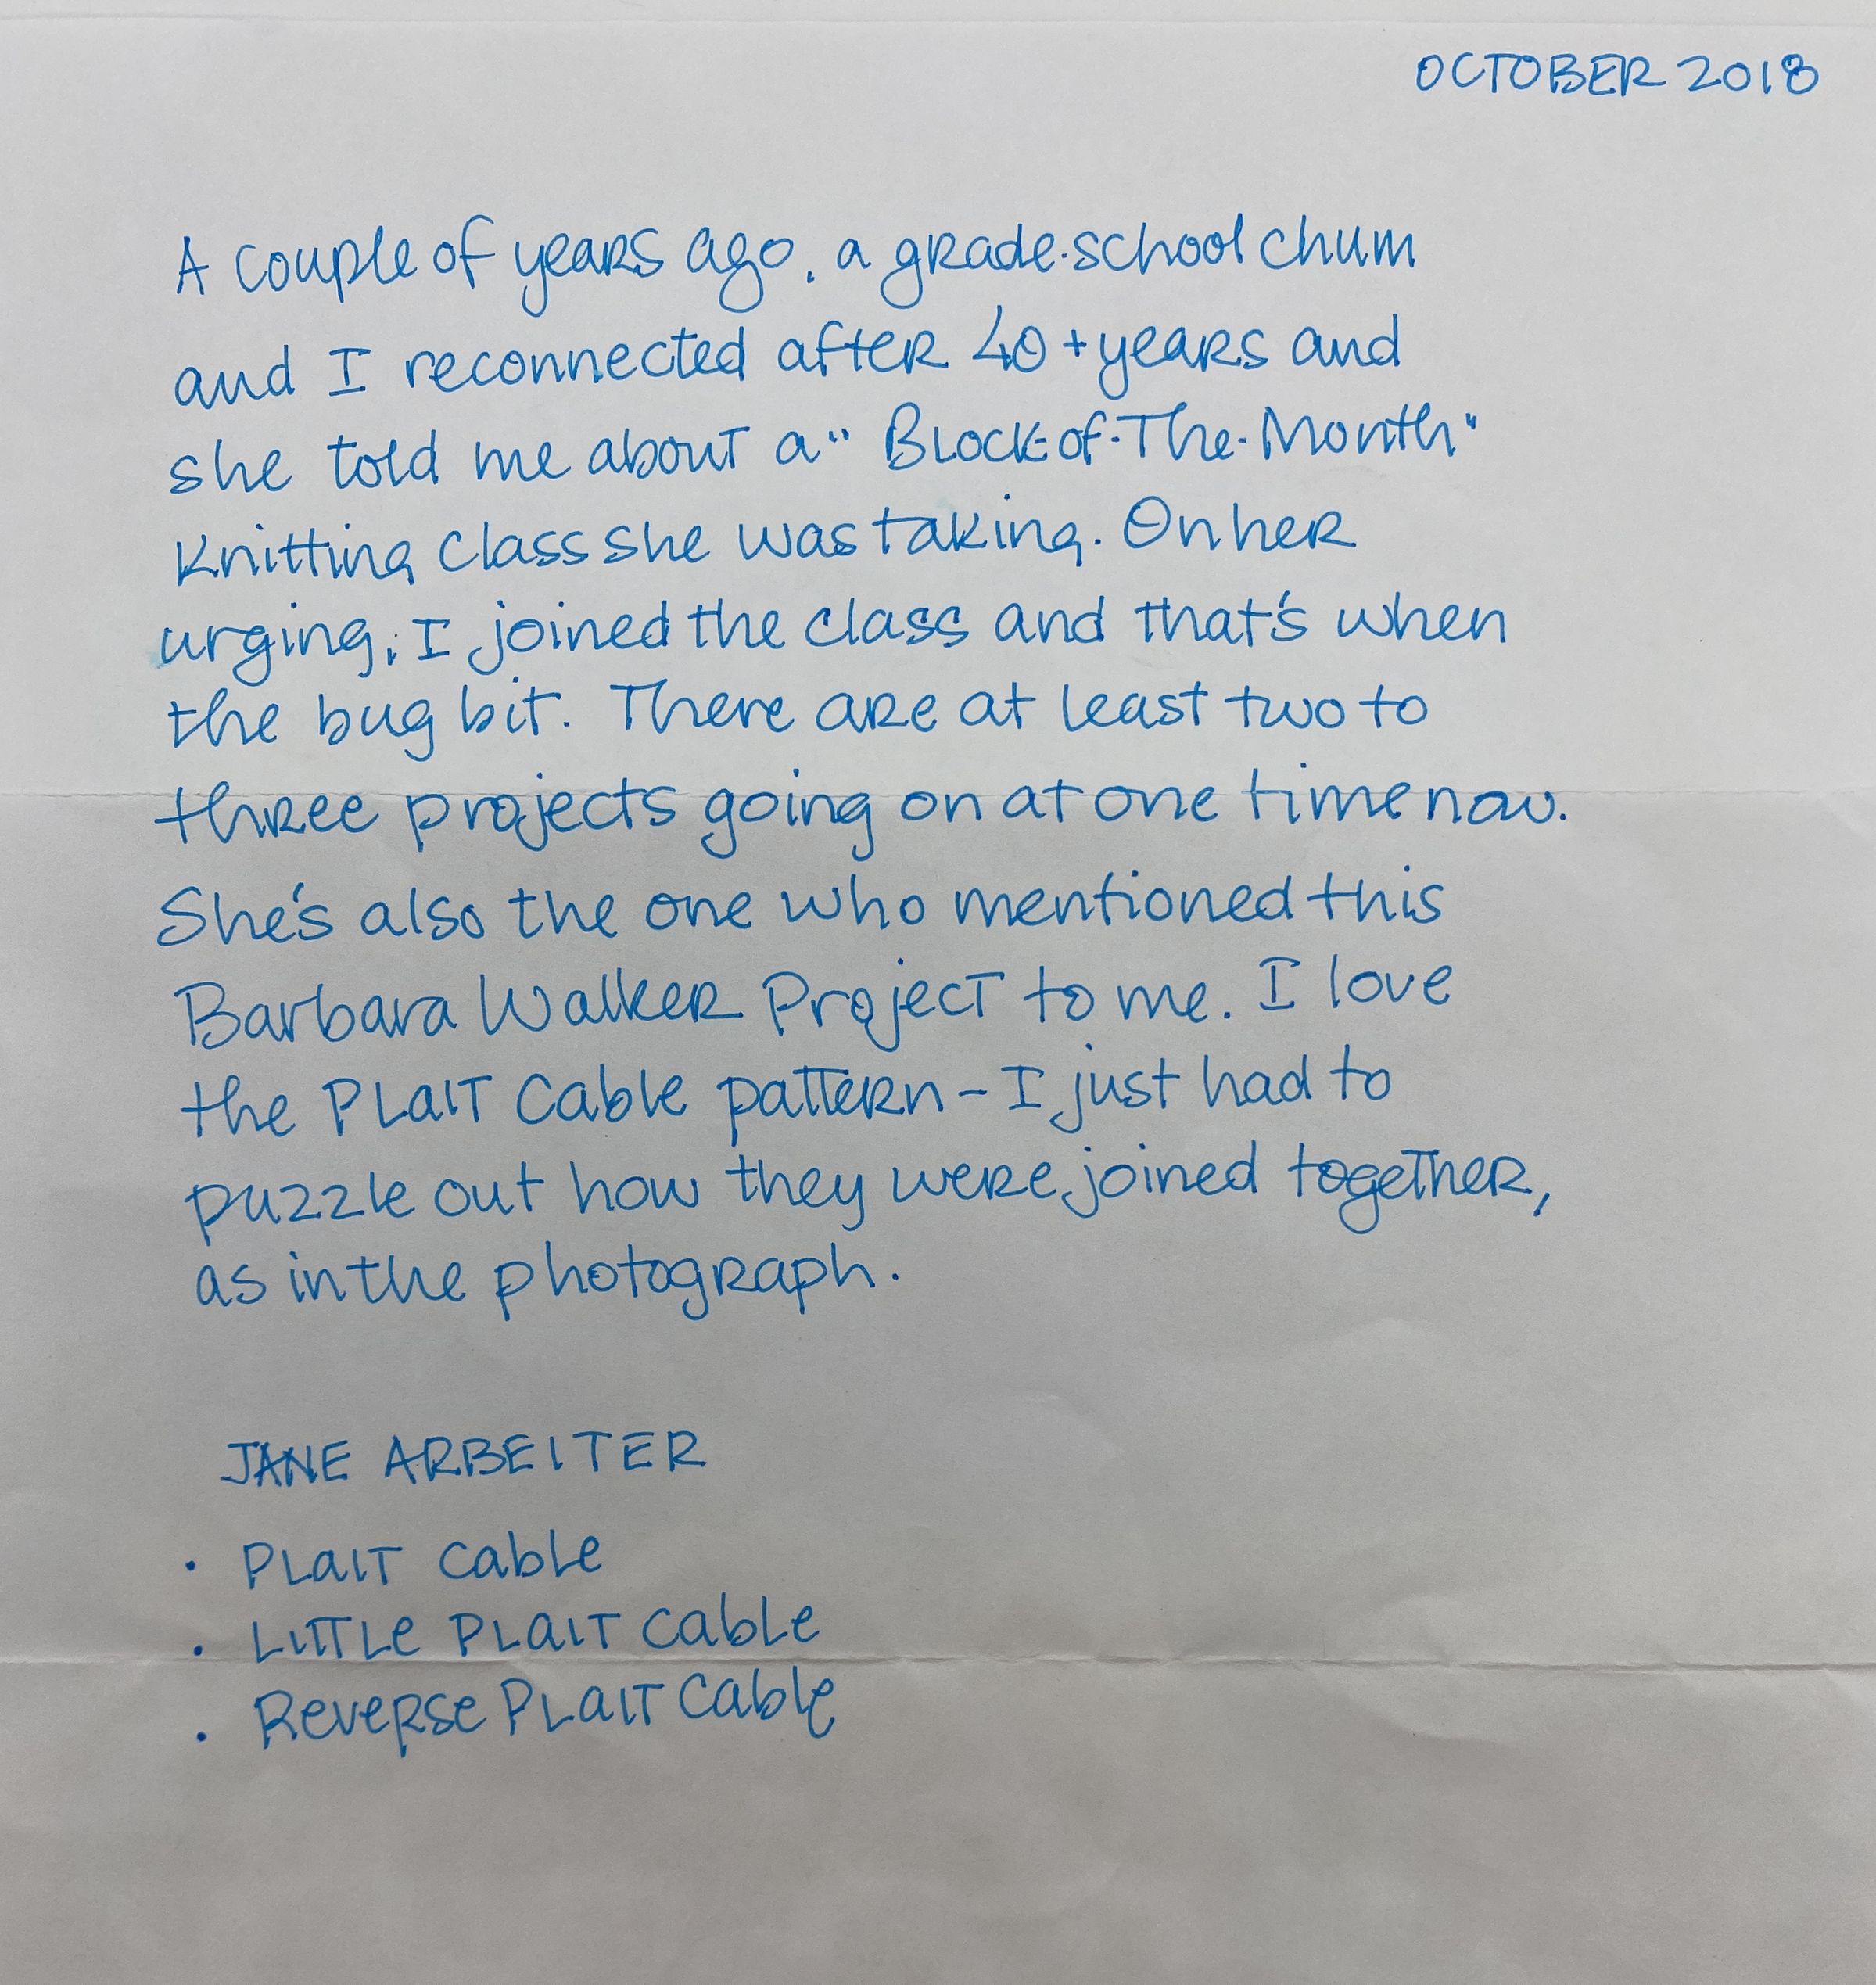 OCTOBER 2018
A couple of years ago, a grade-school chum
and I reconnected after 40+ years and
she told me about a "Block-of-The-Month"
Knitting class she was taking. On her
urging, I joined the class and that's when
the bug bit. There are at least two to
three projects going on at one time now.
She's also the one who mentioned this
Barbara Walker Project to me. I love
the Plait Cable pattern - I just had to
puzzle out how they were joined together,
as in the photograph.
JANE ARBEITER
· Plait Cable
· Little Plait Cable
· Reverse Plait Cable